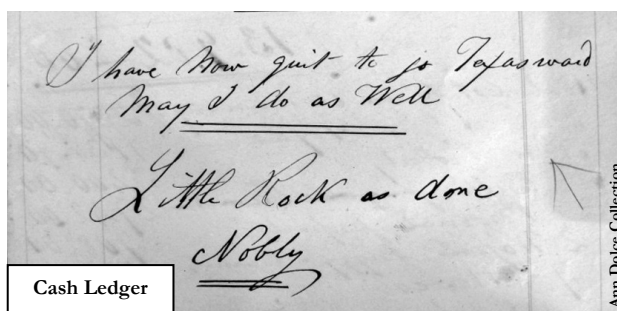 I have now quit to go Texasward
May I do as Well
Little Rock as done
Nobly
Cash Ledger
Ann Dolce Collection